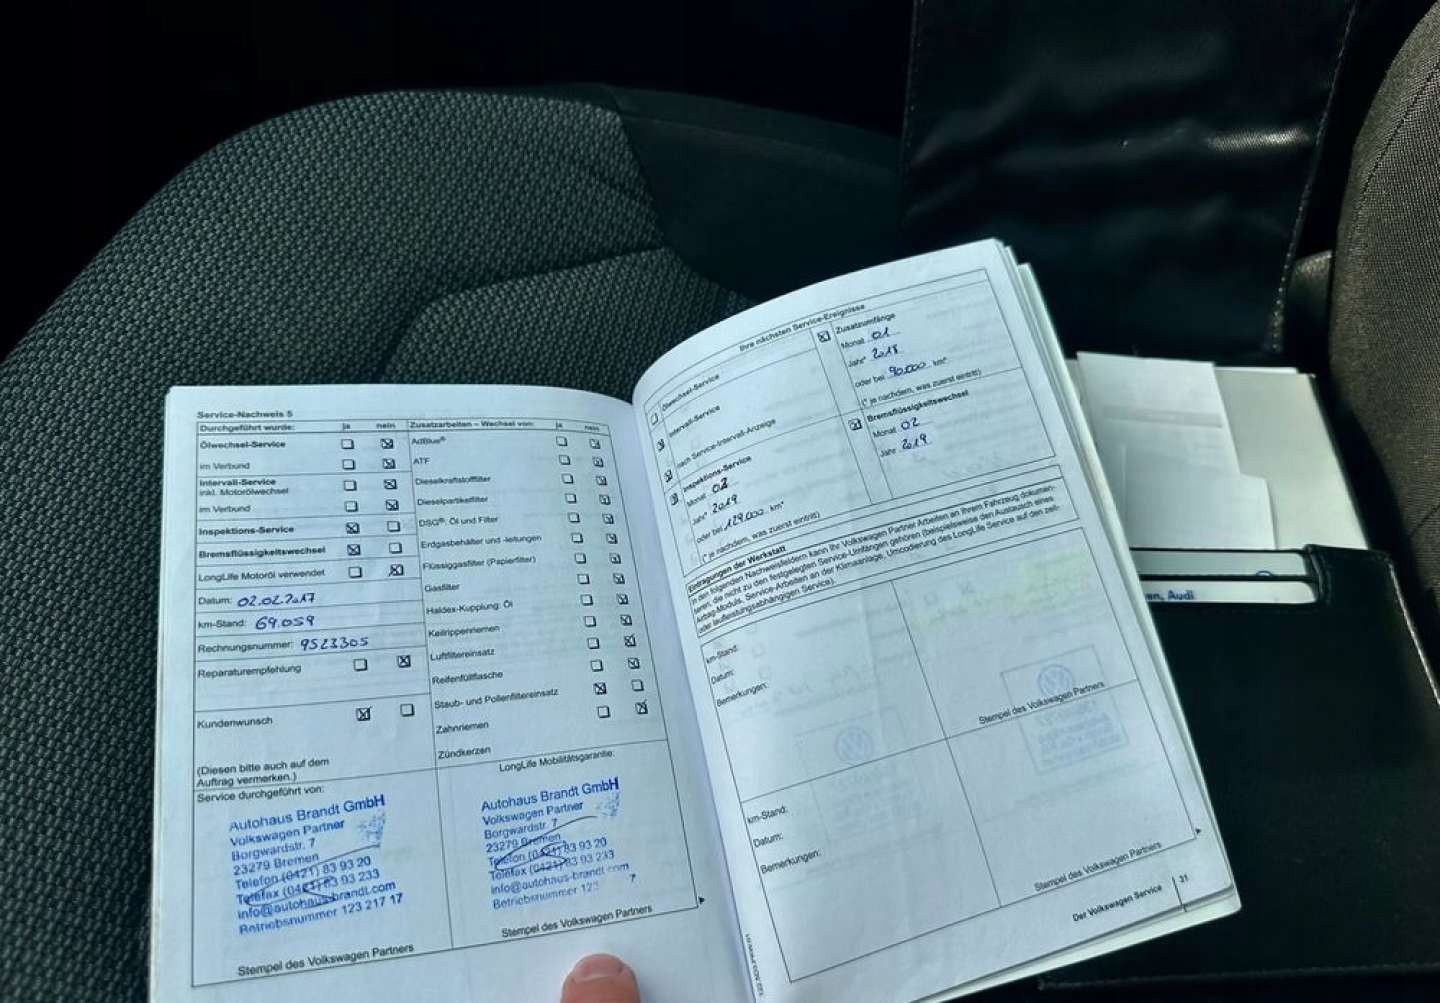 Service-Nachweis 5
Durchgeführt wurde: ja nein
Ölwechsel-Service
im Verbund
Intervall-Service
inkl. Motorölwechsel
im Verbund
Inspektions-Service
Bremsflüssigkeitswechsel
LongLife Motoröl verwendet
Datum: 02.02.2017
km-Stand: 69.059
Rechnungsnummer: 9523305
Reparaturempfehlung
Kundenwunsch
(Diesen bitte auch auf dem
Auftrag vermerken.)
Zusatzarbeiten – Wechsel von: ja nein
AdBlue®
ATF
Dieselkraftstofffilter
Dieselpartikelfilter
DSG®: Öl und Filter
Erdgasbehälter und -leitungen
Flüssiggasfilter (Papierfilter)
Gasfilter
Haldex-Kupplung: Öl
Keilrippenriemen
Luftfiltereinsatz
Reifenfüllflasche
Staub- und Pollenfiltereinsatz
Zahnriemen
Zündkerzen
Service durchgeführt von:
Autohaus Brandt GmbH
Volkswagen Partner
Borgwardstr. 7
23279 Bremen
Telefon (0421) 83 93 20
Telefax (0421) 83 93 233
info@autohaus-brandt.com
Betriebsnummer 123 217 17
Stempel des Volkswagen Partners
LongLife Mobilitätsgarantie:
Autohaus Brandt GmbH
Volkswagen Partner
Borgwardstr. 7
23279 Bremen
Telefon (0421) 83 93 20
Telefax (0421) 83 93 233
info@autohaus-brandt com
Betriebsnummer 123 7
Stempel des Volkswagen Partners
Ihre nächsten Service-Ereignisse
Ölwechsel-Service
Intervall-Service
nach Service-Intervall-Anzeige
Inspektions-Service
Monat 02
Jahr* 2019
oder bei 129.000 km*
(* je nachdem, was zuerst eintritt)
Zusatzumfänge
Monat 01
Jahr* 2018
oder bei 90.000 km*
(* je nachdem, was zuerst eintritt)
Bremsflüssigkeitswechsel
Monat 02
Jahr 2019
Eintragungen der Werkstatt
In den folgenden Nachweisfeldern kann Ihr Volkswagen Partner Arbeiten an Ihrem Fahrzeug dokumen-
tieren, die nicht zu den festgelegten Service-Umfängen gehören (beispielsweise den Austausch eines
Airbag-Moduls, Service-Arbeiten an der Klimaanlage, Umcodierung des LongLife Service auf den zeit-
oder laufleistungsabhängigen Service).
km-Stand:
Datum:
Bemerkungen:
Stempel des Volkswagen Partners
km-Stand:
Datum:
Bemerkungen:
Stempel des Volkswagen Partners
Der Volkswagen Service 31
en, Audi